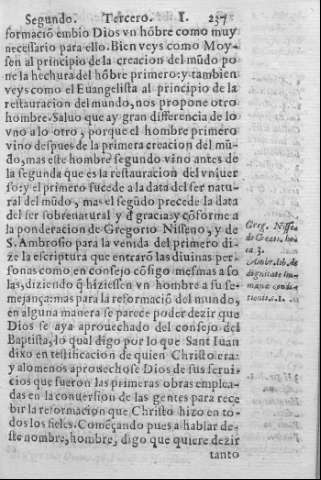 Segundo. Tercero. I. 237
formaciõ embio Dios vn hõbre como muy
necessario para ello. Bien veys como Moy-
sen al principio de la creacion del mũdo po
ne la hechura del hõbre primero: y tambien
veys como el Euangelista al principio de la
restauracion del mundo, nos propone otro
hombre. Saluo que ay gran differencia de lo
vno a lo otro, porque el hombre primero
vino despues de la primera creacion del mũ-
do, mas este hombre segundo vino antes de
la segunda que es la restauracion del vniuer
so: y el primero sucede a la data del ser natu-
ral del mũdo, mas el segũdo precede la data
del ser sobrenatural y d̃ gracia: y cõforme a
la ponderacion de Gregorio Nisseno, y de
S. Ambrosio para la venida del primero di-
ze la escriptura que entrarõ las diuinas per-
sonas como en consejo cõsigo mesmas a so
las, diziendo q̃ hiziessen vn hombre a su se-
mejança: mas para la reformaciõ del mundo,
en alguna manera se parece poder dezir que
Dios se aya aprouechado del consejo del
Baptista, lo qual digo por lo que Sant Iuan
dixo en testificacion de quien Christo era:
y alomenos aprouechose Dios de sus serui-
cios que fueron las primeras obras emplea-
das en la conuersion de las gentes para rece
bir la reformacion que Christo hizo en to-
dos los fieles. Començando pues a hablar de-
ste nombre, hombre, digo que quiere dezir
tanto
Greg. Nisse.
de Creat. ho
ca. 3.
Ambr. lib. de
dignitate hu-
manæ condi-
tionis. c. 1.